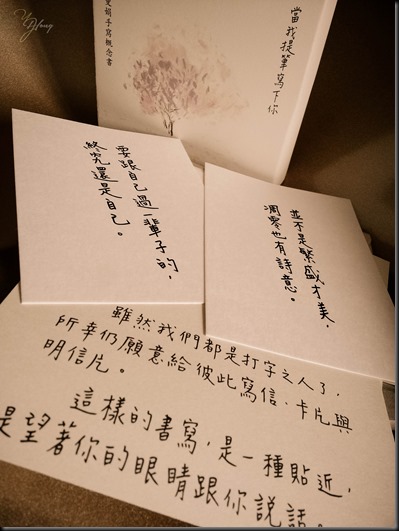 當我提筆寫下你
史娟手寫概念書
要跟自己過一輩子的,
終究還是自己。
並不是繁盛才美,
凋零也有詩意。
雖然我們都是打字之人了,
所幸仍願意給彼此寫信、卡片與
明信片。
這樣的書寫,是一種貼近,
是望著你的眼睛跟你說話。